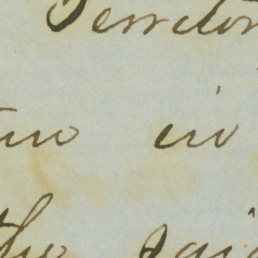 Territor
in
the said